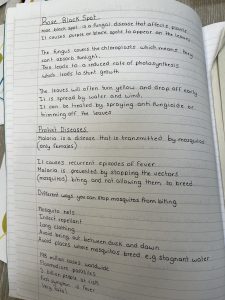 Rose Black Spot
Rose black spot is a fungal disease that affects plants.
It causes purple or black spots to appear on the leaves.
The fungus causes the chloroplasts which means they
can't absorb sunlight.
This leads to a reduced rate of photosynthesis
which leads to stunt growth
The leaves will often turn yellow and drop off early.
It is spread by water and wind.
It can be treated by spraying anti fungicide or
trimming off the leaves
Protist Diseases
Malaria is a disease that is transmitted by mosquitos
(only females)
It causes recurrent episodes of fever.
Malaria is prevented by stopping the vectors
(mosquitos) biting and not allowing them to breed.
Different ways you can stop mosquitos from biting
Mosquito nets
Insect repellent
Long clothing
Avoid being out between dusk and dawn
Avoid places where mosquitos breed e.g stagnant water
million cases worldwide
Plasmodium parasites
billion people at risk
First symptom is fever
Very fatal